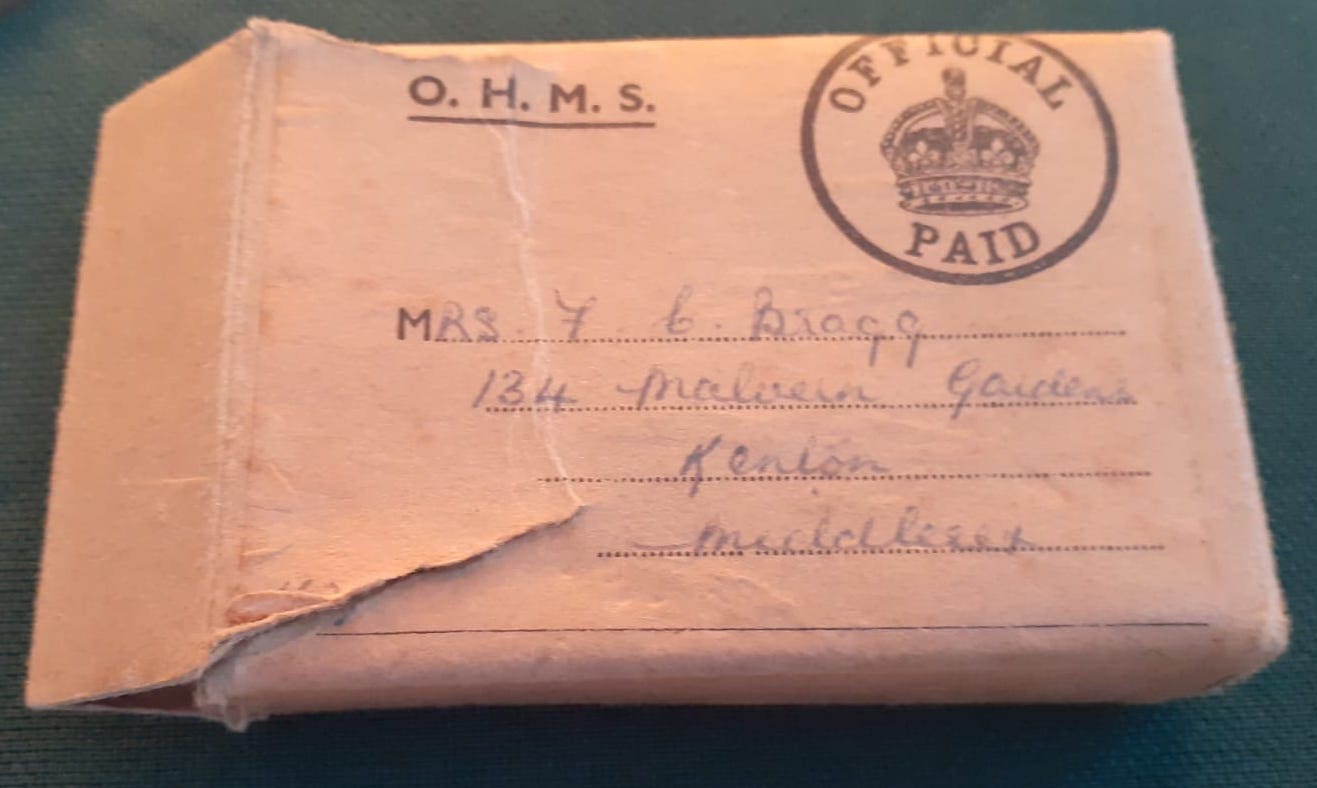 O. H. M. S.
OFFICIAL
PAID
MRS. F. C. Bragg
134 Malvern Gardens
Kenton
Middlesex